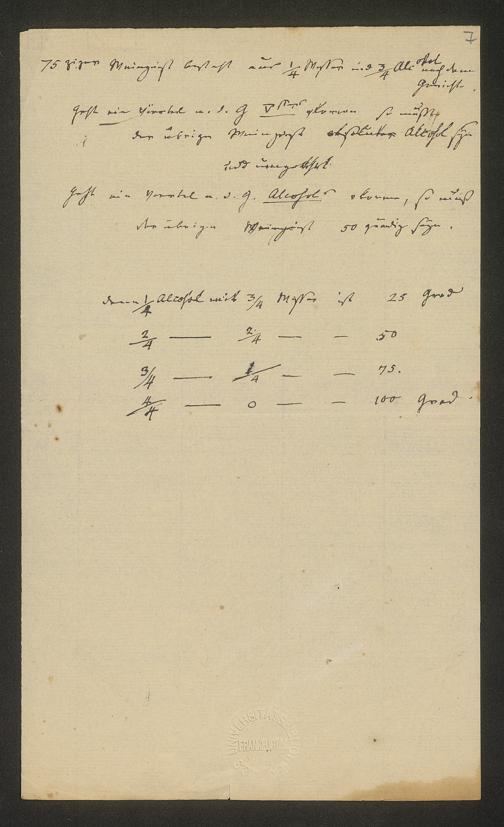 7
75 ziger Weingeist besteht aus 1/4 Wasser und 3/4 Alcohol nach dem
Gewichte.
Geht ein Viertel u. d. G verloren so müßte
der übrige Weingeist absoluter Alcohol seyn
und umgekehrt.
Geht ein Viertel u. d. G. Alcohols verloren, so muß
der übrige Weingeist 50 grädig seyn.
denn 1/4 Alcohol mit 3/4 Wasser ist 25 Grad
2/4 — 2/4 — — 50
3/4 — 1/4 — — 75.
4/4 — 0 — — 100 Grad.